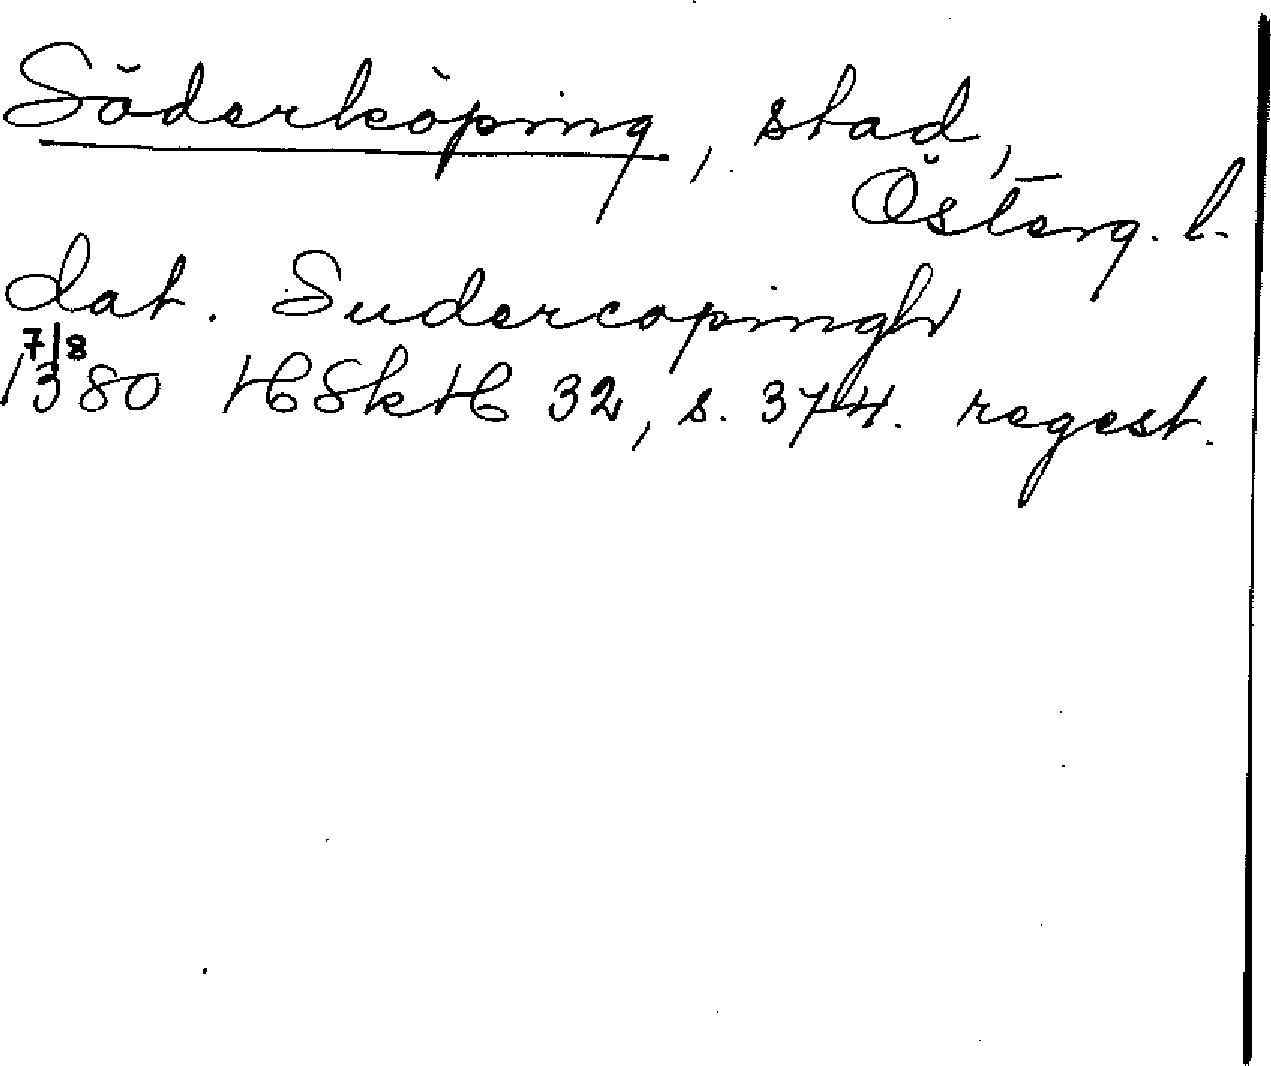 Söderköping, stad,
Österg. l.
dat. Sudercopingh
7/8
1380 HSkH 32, s. 374. regest.